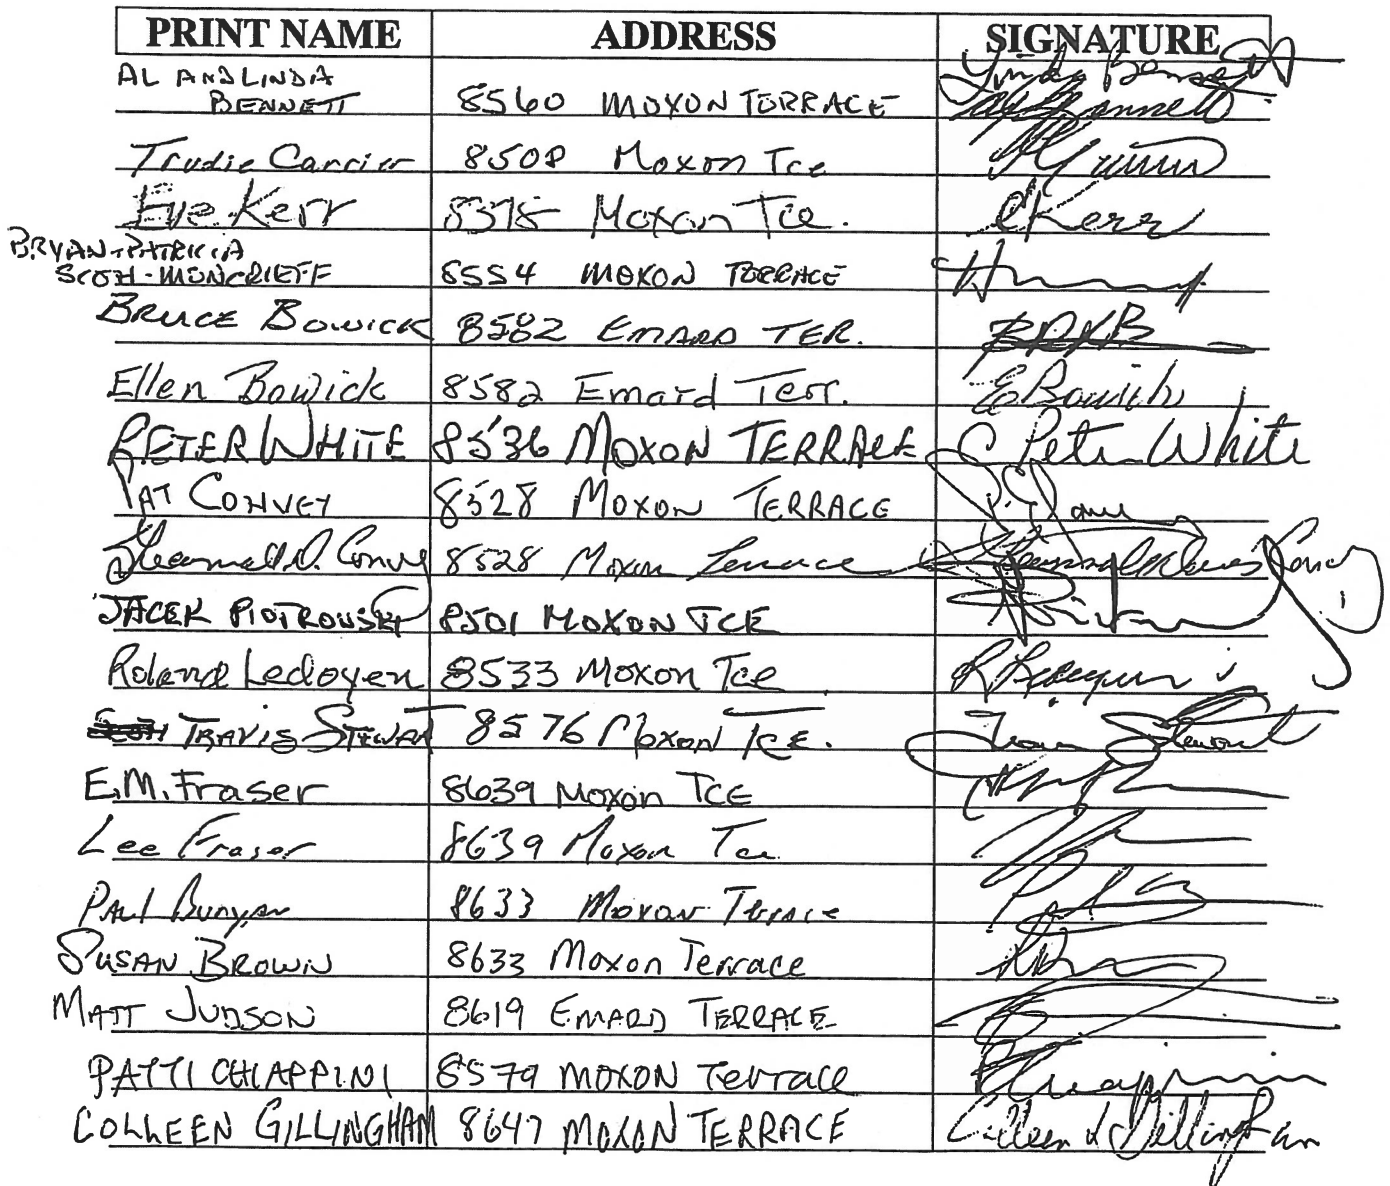 PRINT NAME ADDRESS SIGNATURE
AL AND LINDA
BENNETT 8560 MOXON TERRACE Linda Bennett
Trudie Carrier 8508 Moxon Tce
Eve Kerr 8378 Moxon Tce. EKerr
BRYAN + PATRICIA
SCOTT-MONCRIEFF 8554 MOXON TERRACE
BRUCE BOWICK 8582 EMARD TER.
Ellen Bowick 8582 Emard Terr. E Bowick
PETER WHITE 8536 MOXON TERRACE C Peter White
PAT CONVEY 8528 MOXON TERRACE
8528 Moxon Terrace
JACEK PIOTROWSKI 8501 MOXON TCE
Roland Ledoyen 8533 Moxon Tce
TRAVIS STEWART 8576 MOXON TCE. Travis Stewart
E.M. Fraser 8639 Moxon TCE
Lee Fraser 8639 Moxon Tce
PAUL Bunyan 8633 MOXON Terrace
SUSAN BROWN 8633 Moxon Terrace
MATT JUDSON 8619 EMARD TERRACE
PATTI CHIAPPINI 8579 MOXON Terrace
COLLEEN GILLINGHAM 8647 MOXON TERRACE Colleen L Gillingham